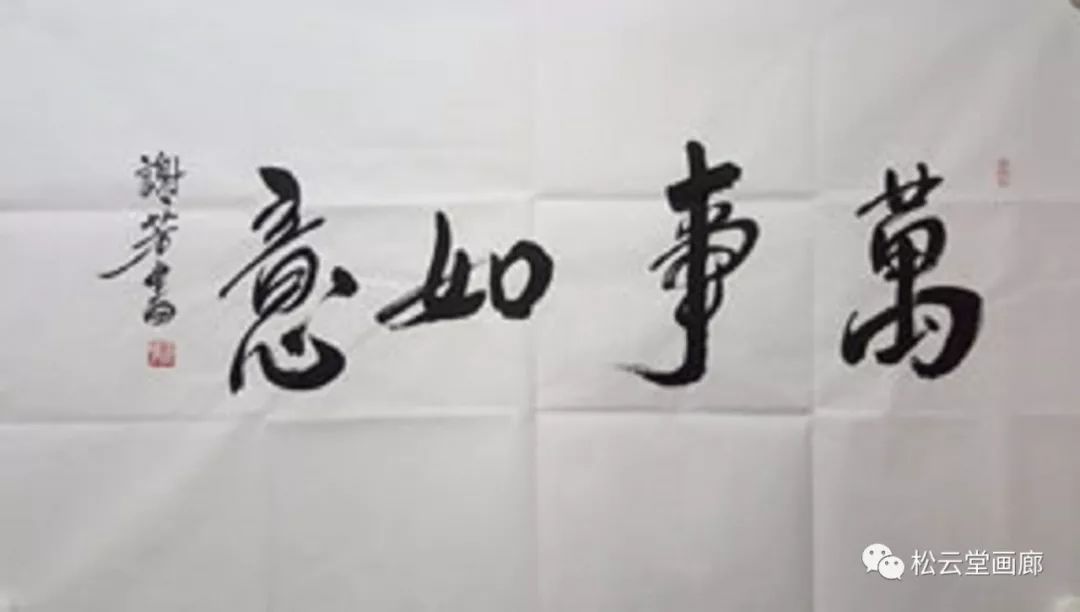 萬事如意
謝芳書
松云堂画廊